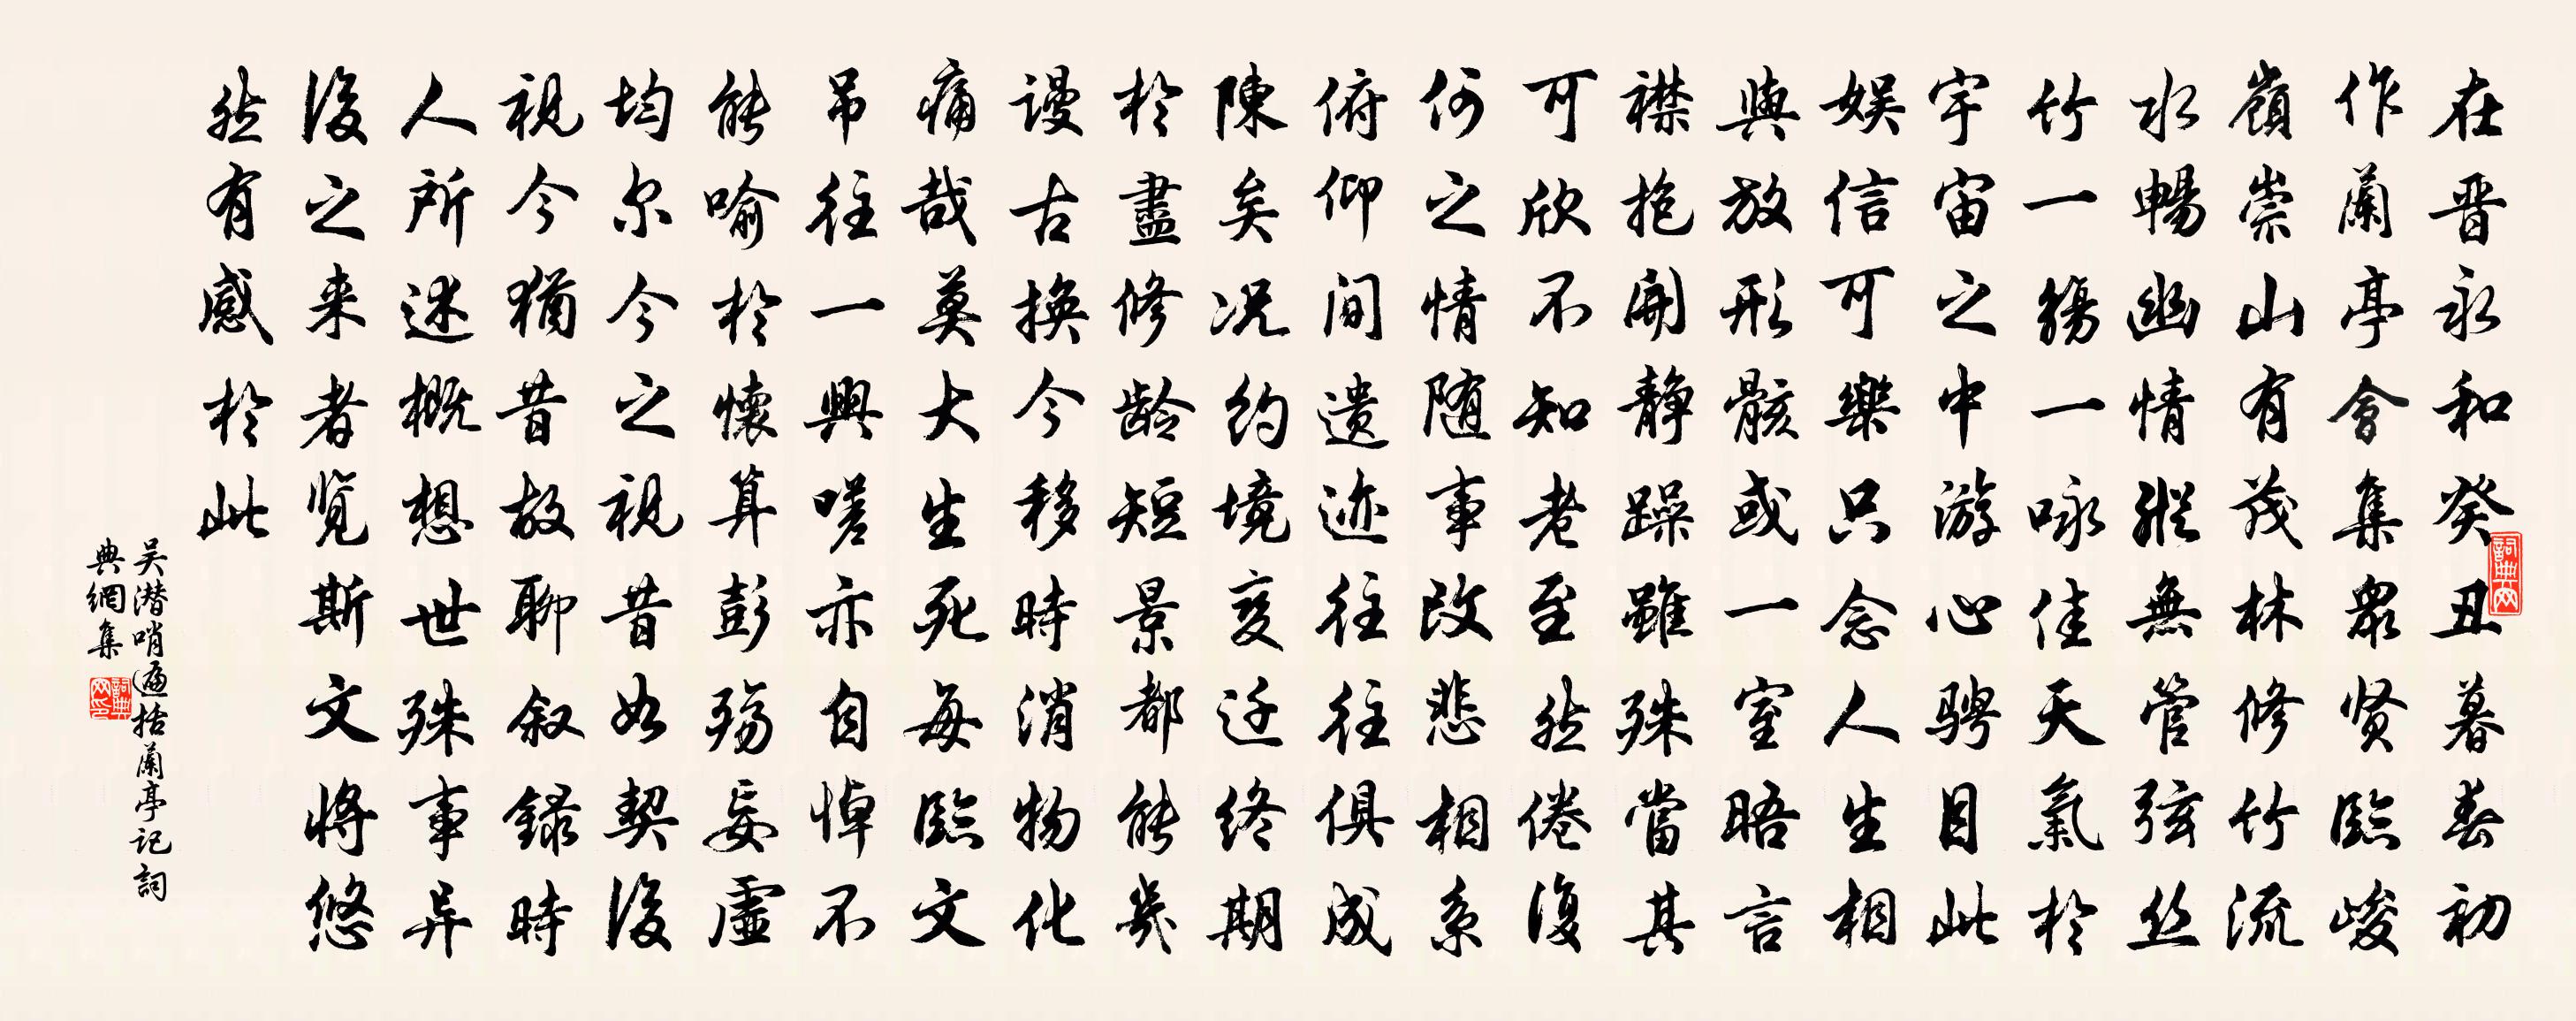 在晋永和癸丑暮春初
作蘭亭會集眾贤臨峻
嶺崇山有茂林修竹流
水暢幽情縱無管弦丝
竹一觴一咏佳天氣於
宇宙之中游心骋目此
娱信可樂只念人生相
與放形骸或一室晤言
襟抱開静躁雖殊當其
可欣不知老至然倦復
何之情随事改悲相系
俯仰间遗迹往往俱成
陳矣况约境变迁终期
於盡修龄短景都能幾
谩古换今移時消物化
痛哉莫大生死每臨文
吊往一興嗟亦自悼不
能喻於懷算彭殤妄虚
均尔今之視昔如契後
視今猶昔故聊叙録時
人所述概想世殊事异
後之来者览斯文将悠
然有感於此
吴潜哨遍括蘭亭记詞
典網集
詞典网
詞典网印